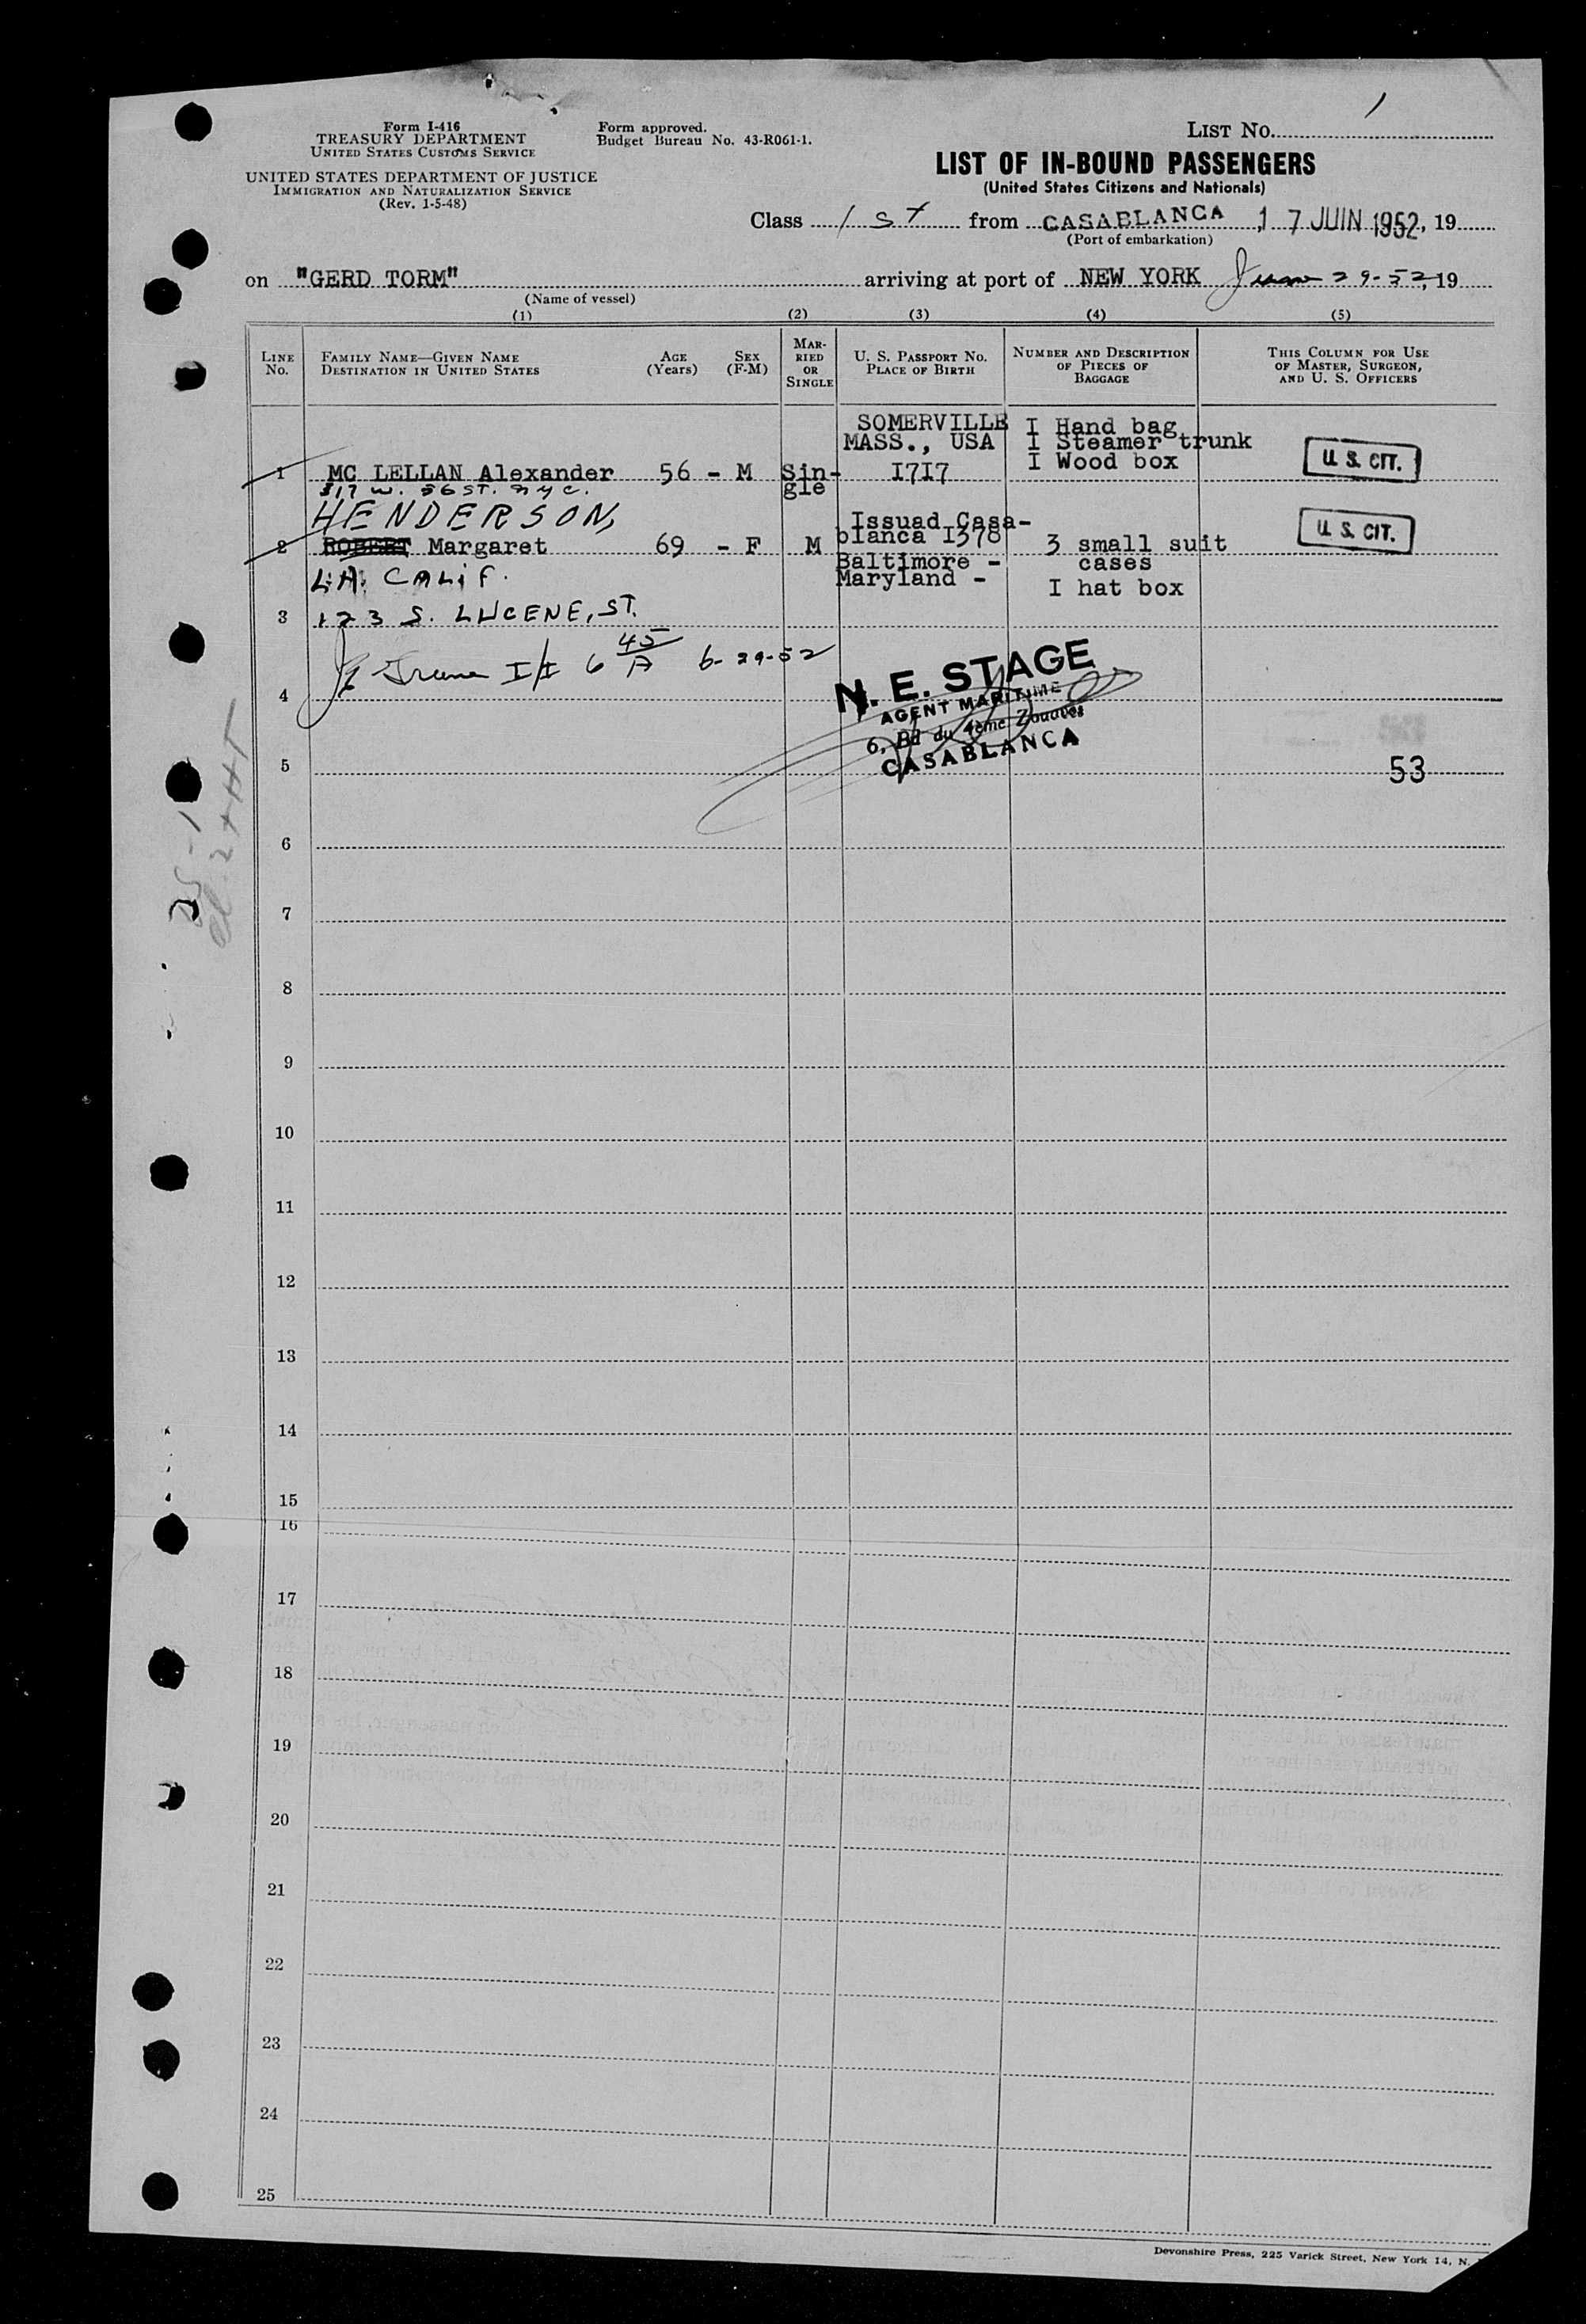 Form I-416
TREASURY DEPARTMENT
UNITED STATES CUSTOMS SERVICE
UNITED STATES DEPARTMENT OF JUSTICE
IMMIGRATION AND NATURALIZATION SERVICE
(Rev. 1-5-48)
Form approved.
Budget Bureau No. 43-R061-1.
LIST No. 1
LIST OF IN-BOUND PASSENGERS
(United States Citizens and Nationals)
Class 1st from CASABLANCA, 17 JUIN 1952, 19
(Port of embarkation)
on "GERD TORM" arriving at port of NEW YORK June 29-52, 19
(Name of vessel)
(1) (2) (3) (4) (5)
LINE No.
FAMILY NAME—GIVEN NAME
DESTINATION IN UNITED STATES
AGE (Years)
SEX (F-M)
MARRIED OR SINGLE
U. S. PASSPORT NO.
PLACE OF BIRTH
NUMBER AND DESCRIPTION OF PIECES OF BAGGAGE
THIS COLUMN FOR USE OF MASTER, SURGEON, AND U. S. OFFICERS
SOMERVILLE I Hand bag
MASS., USA I Steamer trunk
1 MC LELLAN Alexander 56 - M Single I7I7 I Wood box U. S. CIT.
317 W. 56 ST. NYC.
HENDERSON,
Issued Casa-
2 ROBERT Margaret 69 - F M blanca I378 3 small suit cases U. S. CIT.
Baltimore -
L.A. CALIF. Maryland - I hat box
3 123 S. LUCENE, ST.
I/I 6 45/A 6-29-52
4
N. E. STAGE
AGENT MARITIME
6, Bd du 4ème Zouaves
CASABLANCA
5 53
6
7
8
9
10
11
12
13
14
15
16
17
18
19
20
21
22
23
24
25
Devonshire Press, 225 Varick Street, New York 14, N.